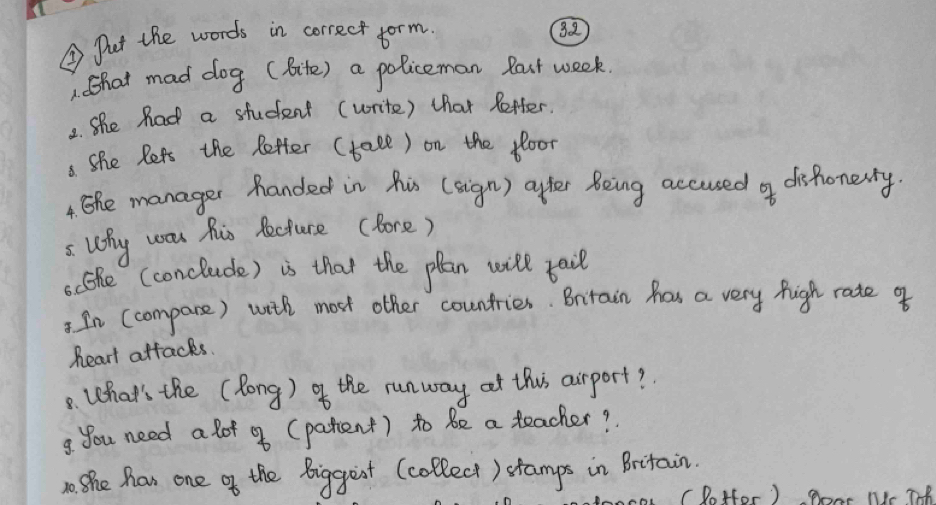 ① Put the words in correct form. (32)
1. That mad dog (bite) a policeman last week.
2. She had a student (write) that letter.
3. She lets the letter (fall) on the floor
4. The manager handed in his (sign) after being accused of dishonesty.
5. Why was his lecture (bore)
6. The (conclude) is that the plan will fail
7. In (compare) with most other countries. Britain has a very high rate of
heart attacks.
8. What's the (long) of the runway at this airport?.
9. You need a lot of (patient) to be a teacher?.
10. She has one of the biggest (collect) stamps in Britain.
(letter)